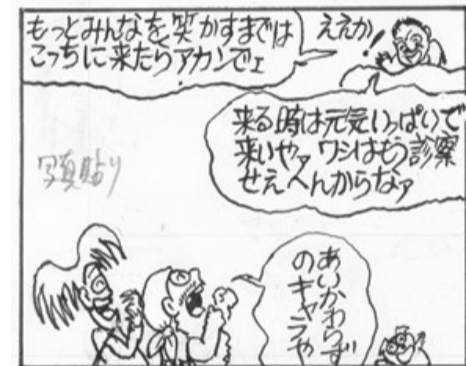 ええか!
もっとみんなを笑かすまでは
こっちに来たらアカンでェ
来る時は元気いっぱいで
来いやァワシはもう診察
せえへんからなァ
写真貼り
あいかわらず
のキャラや